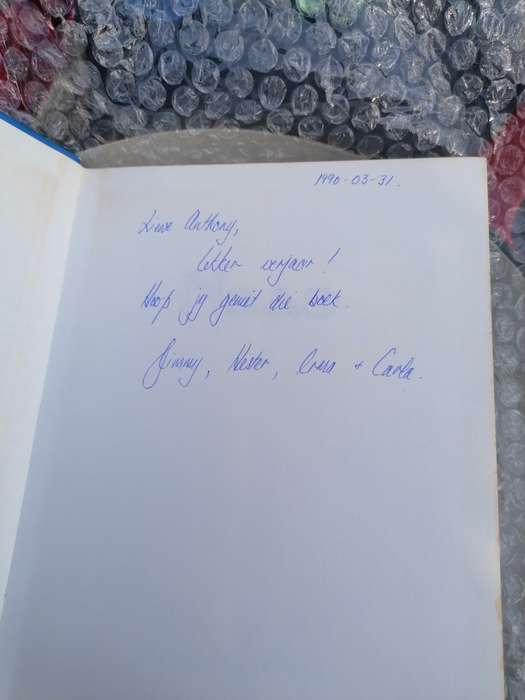 1990-03-31.
Liewe Anthony,
Lekker verjaar!
Hoop jy geniet die boek.
Jimmy, Hester, & Carla.